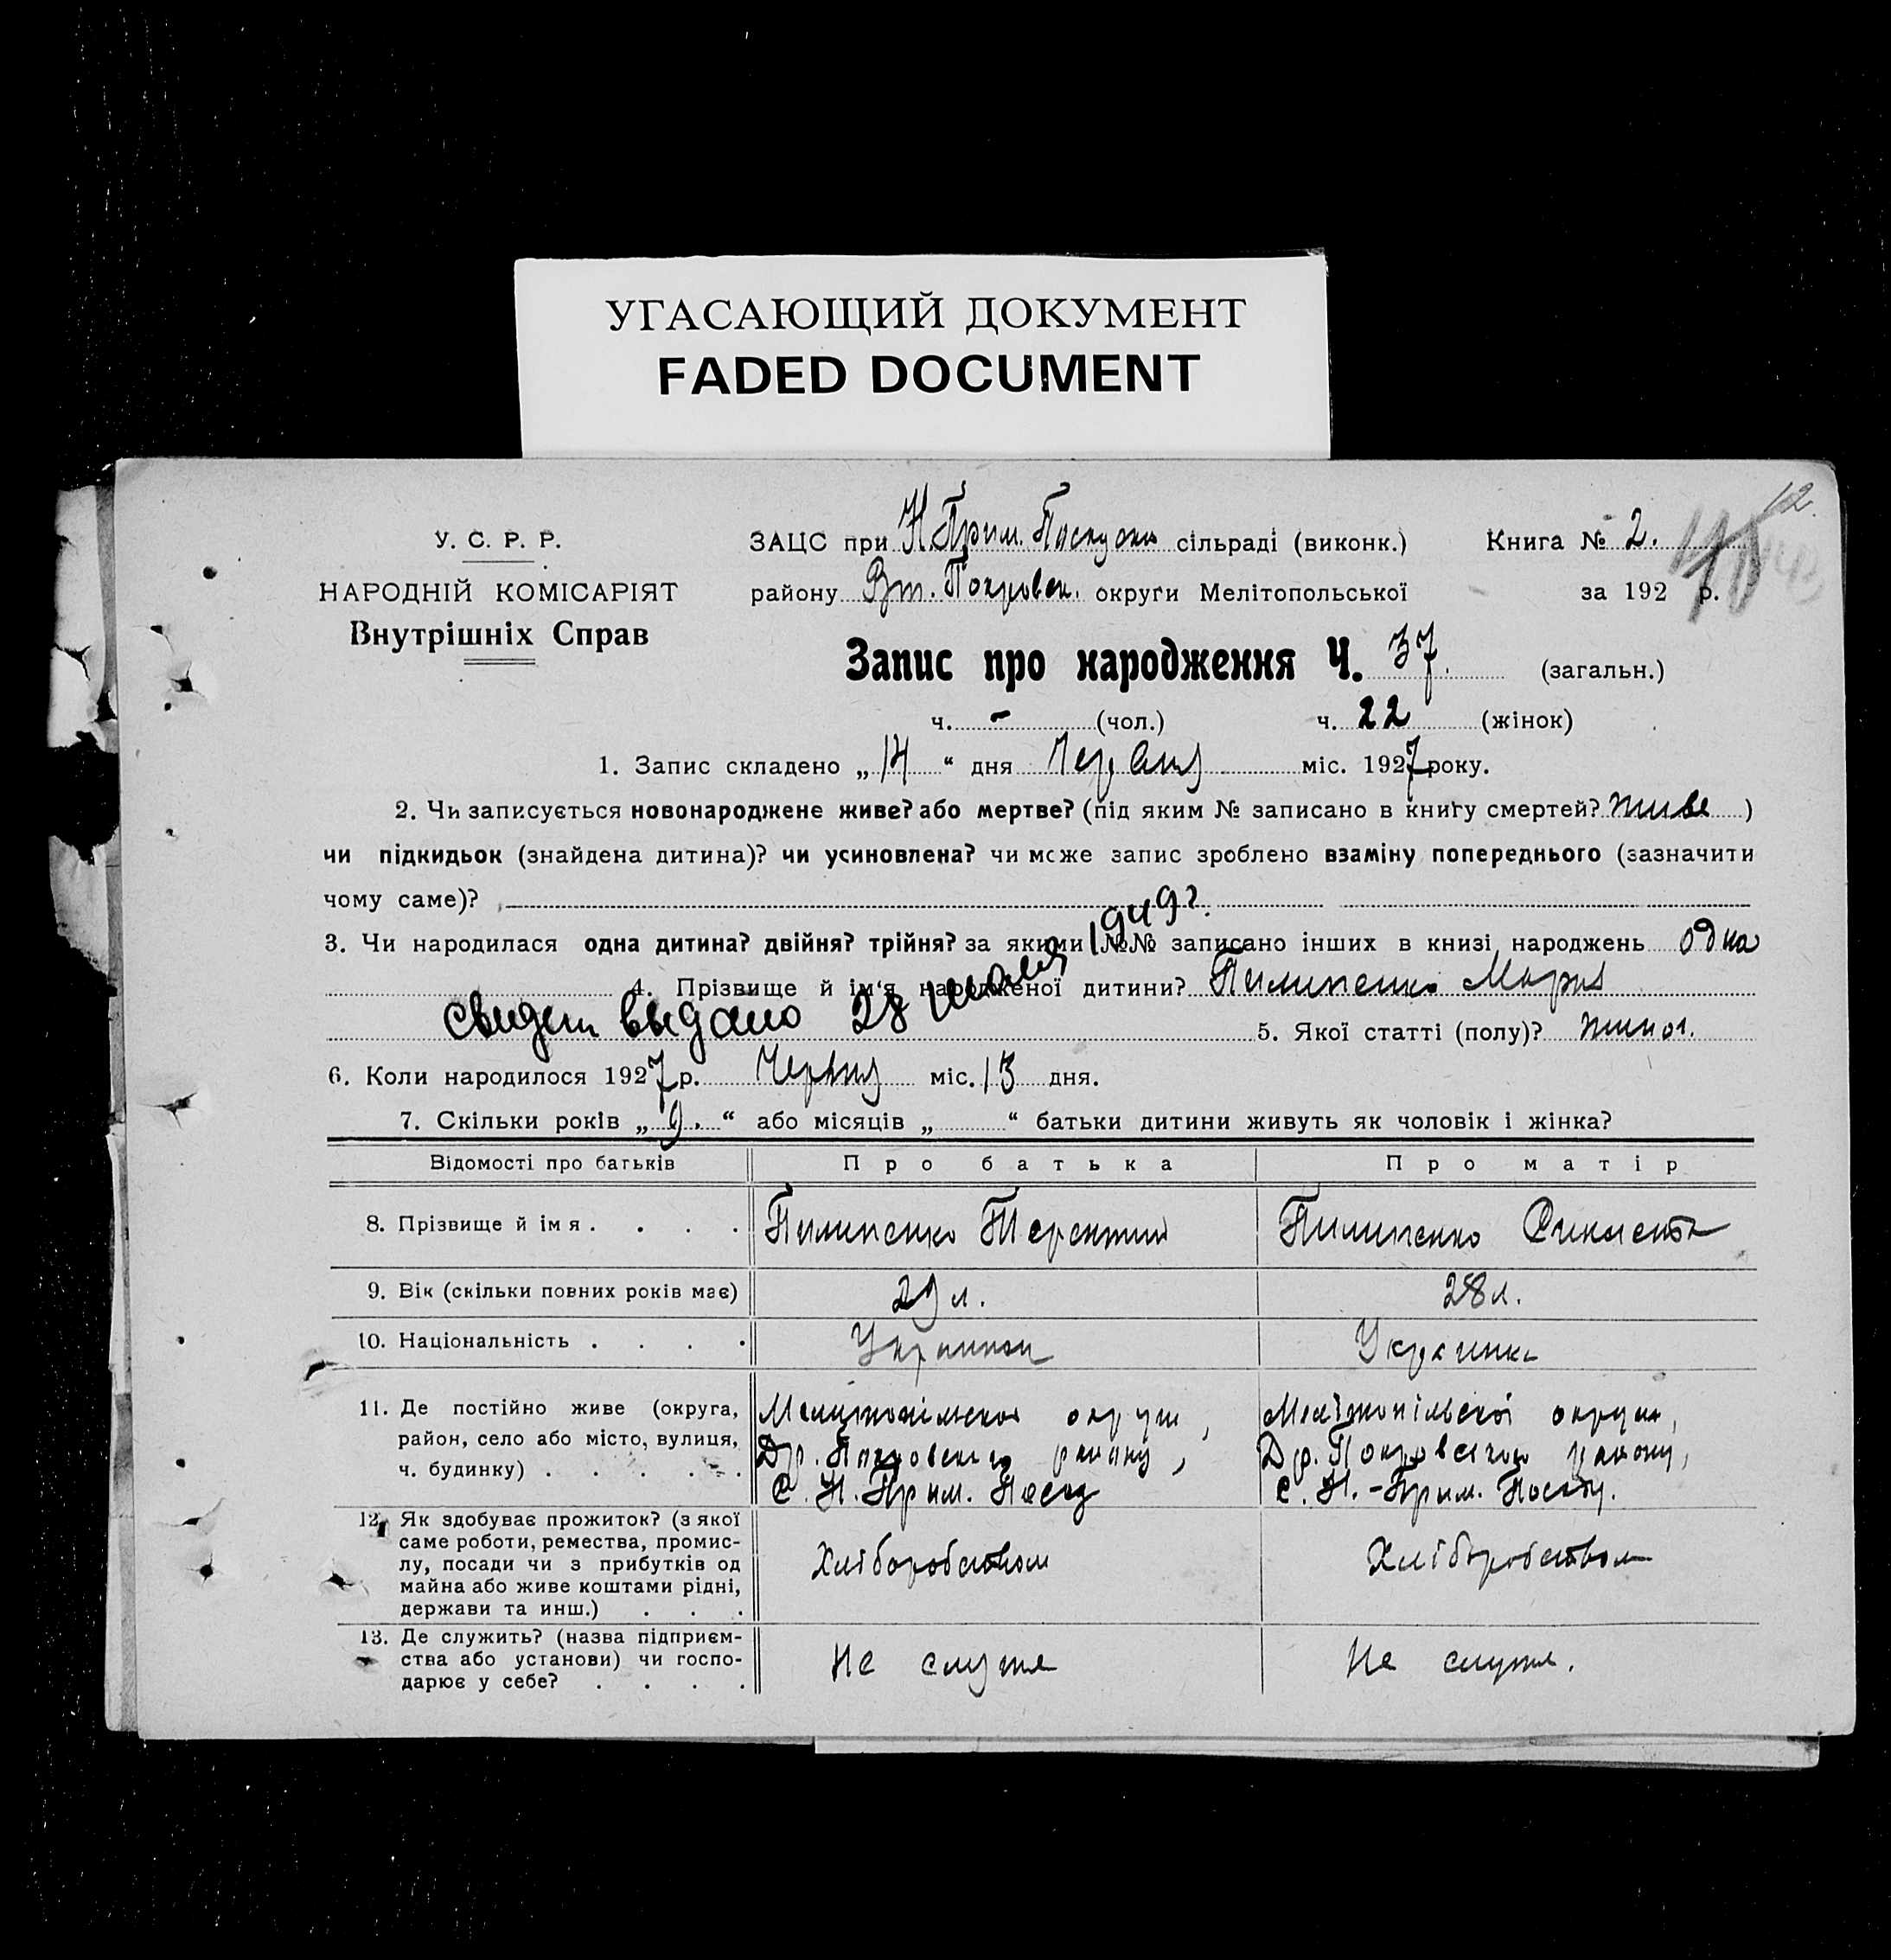 УГАСАЮЩИЙ ДОКУМЕНТ
FADED DOCUMENT
12.
У. С. Р. Р.
НАРОДНІЙ КОМІСАРІЯТ
Внутрішніх Справ
ЗАЦС при Н. Прим. сільраді (виконк.) Книга № 2.
району Вт. Покровск. округи Мелітопольської за 192 р.
Запис про народження Ч. 37. (загальн.)
ч. - (чол.) ч. 22 (жінок)
1. Запис складено „ 14 “ дня Червня міс. 1927 року.
2. Чи записується новонароджене живе? або мертве? (під яким № записано в книгу смертей? живе )
чи підкидьок (знайдена дитина)? чи усиновлена? чи може запис зроблено взаміну попереднього (зазначити
чому саме)?
3. Чи народилася одна дитина? двійня? трійня? за якими №№ записано інших в книзі народжень одна
4. Прізвище й ім‘я народженої дитини? Пилипенко Мария
Свидет выдано 28 1949 г.
5. Якої статті (полу)? жиноч.
6. Коли народилося 1927 р. Червня міс. 13 дня.
7. Скільки років „ 9. “ або місяців „ “ батьки дитини живуть як чоловік і жінка?
Відомості про батьків Про батька Про матір
8. Прізвище й імя . . . . Пилипенко Терентий Пилипенко
9. Вік (скільки повних років має) 29 л. 28 л.
10. Національність . . . . Украинец Украинка
11. Де постійно живе (округа, Мелитопільскоі округи, Мелітопільскоі округи,
район, село або місто, вулиця, Др. Покровского району, Др. Покровского району,
ч. будинку) . . . . . С. Н. Прим. Посад с. Н.-Прим. Посад.
12. Як здобуває прожиток? (з якої
саме роботи, ремества, промис-
лу, посади чи з прибутків од Хліборобством Хліборобством
майна або живе коштами рідні,
держави та инш.) . . .
13. Де служить? (назва підприєм-
ства або установи) чи госпо- Не служе Не служе.
дарює у себе? . . . .